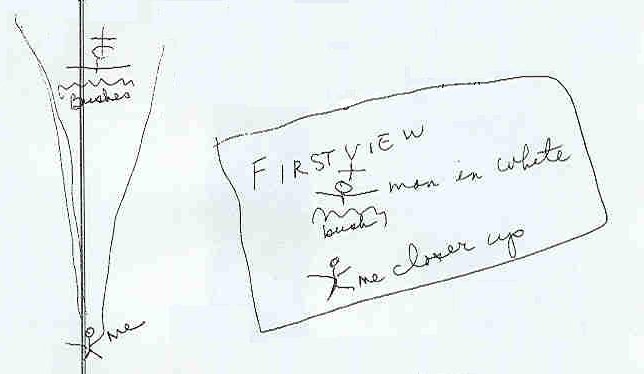 Bushes
me
FIRST VIEW
man in white
bush
me closer up